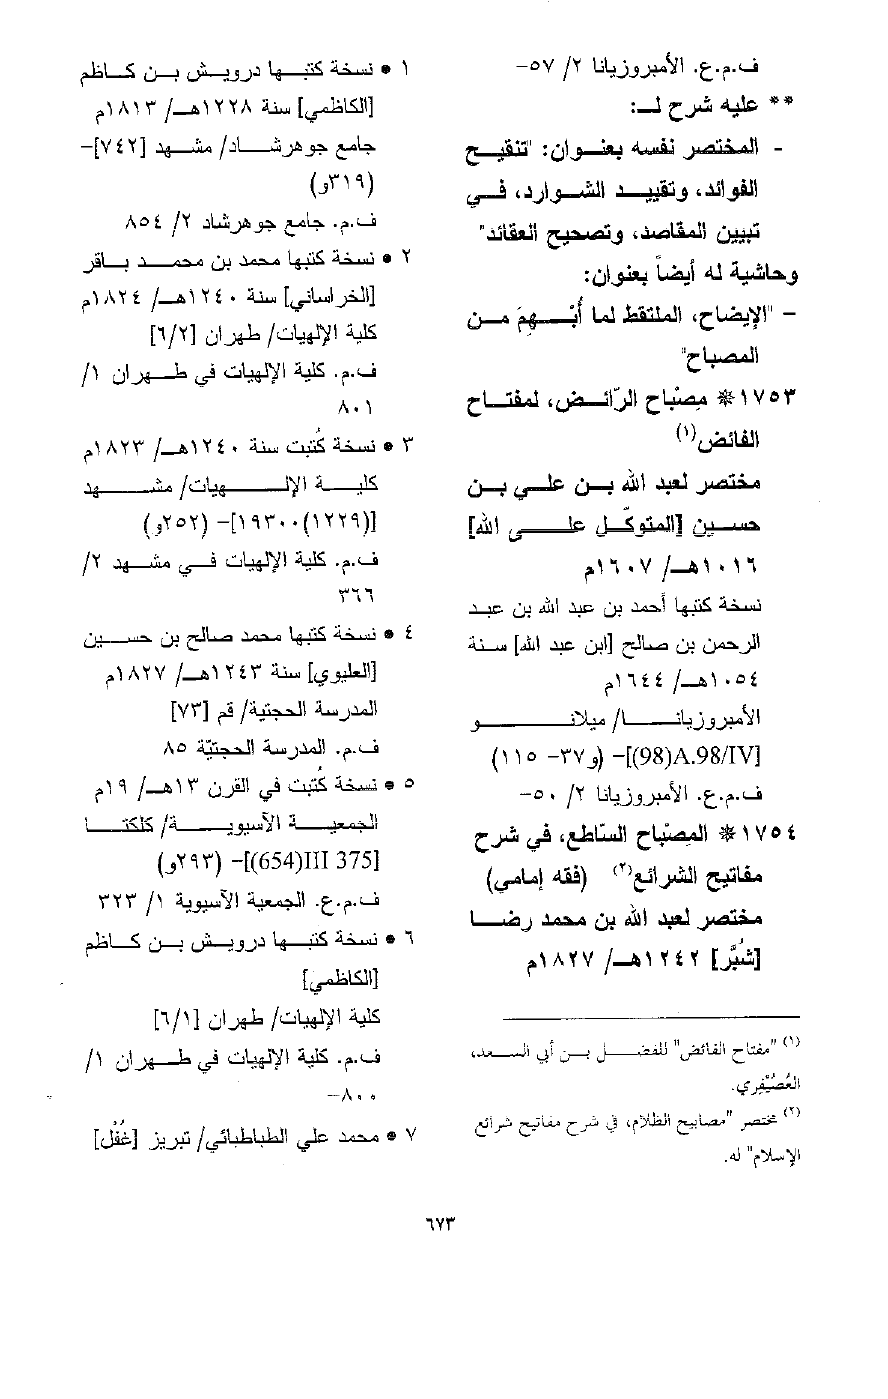 ف.م.ع. الأمبروزيانا ٢/ ٥٧-
** عليه شرح لـ:
- المختصر نفسه بعنوان: "تنقيح
الفوائد، وتقييد الشوارد، في
تبيين المقاصد، وتصحيح العقائد"
وحاشية له أيضاً بعنوان:
- "الإيضاح، الملتقط لما أُبْهِمَ من
المصباح"
١٧٥٣ * مِصْباح الرّائض، لمفتاح
الفائض(١)
مختصر لعبد الله بن علي بن
حسين [المتوكّل على الله]
١٠١٦هـ/ ١٦٠٧م
نسخة كتبها أحمد بن عبد الله بن عبد
الرحمن بن صالح [ابن عبد الله] سنة
١٠٥٤هـ/ ١٦٤٤م
الأمبروزيانا/ ميلانو
[(98)A.98/IV]- (و٣٧- ١١٥)
ف.م.ع. الأمبروزيانا ٢/ ٥٠-
١٧٥٤ * المِصْباح السّاطع، في شرح
مفاتيح الشرائع(٢) (فقه إمامي)
مختصر لعبد الله بن محمد رضا
[شُبَّر] ١٢٤٢هـ/ ١٨٢٧م
(١) "مفتاح الفائض" للفضل بن أبي السعد،
العُصُيْفِري.
(٢) مختصر "مصابيح الظلام، في شرح مفاتيح شرائع
الإسلام" له.
١ • نسخة كتبها درويش بن كاظم
[الكاظمي] سنة ١٢٢٨هـ/ ١٨١٣م
جامع جوهرشاد/ مشهد [٧٤٢]-
(٣١٩و)
ف.م. جامع جوهرشاد ٢/ ٨٥٤
٢ • نسخة كتبها محمد بن محمد باقر
[الخراساني] سنة ١٢٤٠هـ/ ١٨٢٤م
كلية الإلهيات/ طهران [٦/٢]
ف.م. كلية الإلهيات في طهران ١/
٨٠١
٣ • نسخة كُتبت سنة ١٢٤٠هـ/ ١٨٢٣م
كلية الإلهيات/ مشهد
[(١٢٢٩)١٩٣٠٠]- (٢٥٢و)
ف.م. كلية الإلهيات في مشهد ٢/
٣٦٦
٤ • نسخة كتبها محمد صالح بن حسين
[العليوي] سنة ١٢٤٣هـ/ ١٨٢٧م
المدرسة الحجتية/ قم [٧٣]
ف.م. المدرسة الحجتيّة ٨٥
٥ • نسخة كُتبت في القرن ١٣هـ/ ١٩م
الجمعية الآسيوية/ كلكتا
[(654)III 375]- (٢٩٣و)
ف.م.ع. الجمعية الآسيوية ١/ ٣٢٣
٦ • نسخة كتبها درويش بن كاظم
[الكاظمي]
كلية الإلهيات/ طهران [٦/١]
ف.م. كلية الإلهيات في طهران ١/
٨٠٠-
٧ • محمد علي الطباطبائي/ تبريز [غُفْل]
٦٧٣